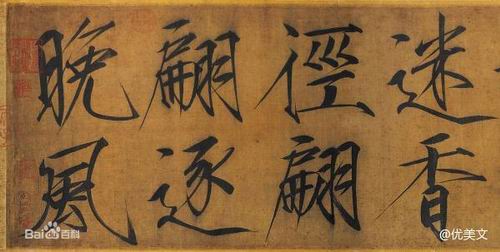 迷香
徑翩
翩逐
晚風
Bai du 百科
@优美文